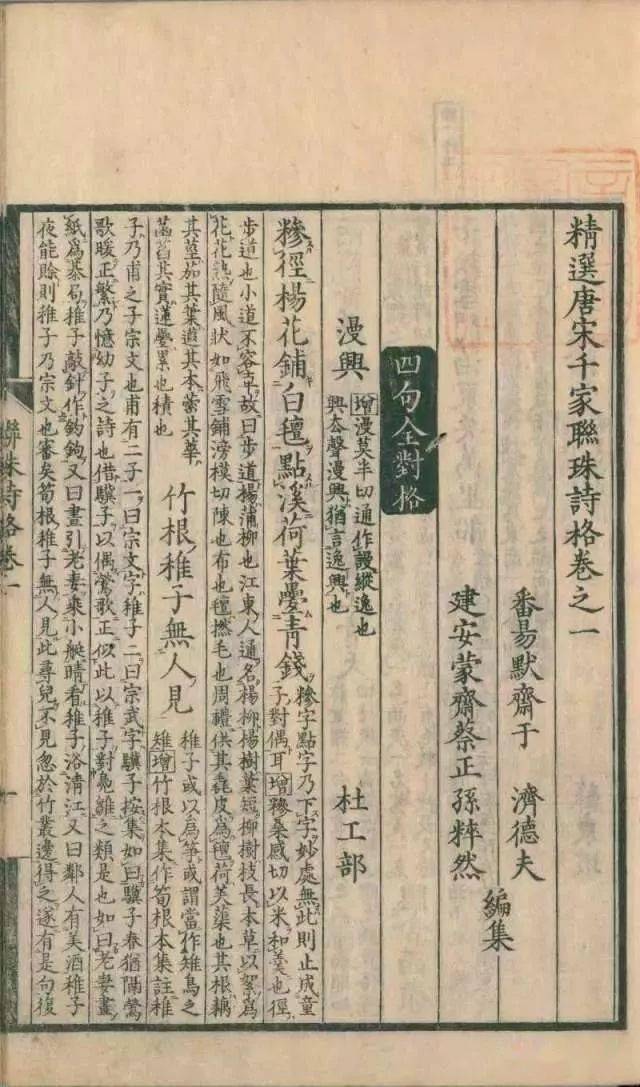 精選唐宋千家聯珠詩格卷之一
番昜默齋于濟德夫
建安蒙齋蔡正孫粹然
編集
四句全對格
漫興
增漫莫半切通作謾縱逸也
興去聲漫興猶言逸興也
杜工部
糝徑楊花鋪白氊點溪荷葉疊青錢
糝字點字乃下字妙處無此則止成童
子對偶耳增糝桑感切以米和羹也徑
步道也小道不容車故曰步道楊蒲柳也江東人通名楊柳楊樹葉短柳樹枝長本草以絮為
花花熟隨風狀如飛雪鋪滂模切陳也布也氊撚毛也周禮供其毳皮為氊荷芙蕖也其根藕
其莖茄其葉蕸其本蔤其華
菡萏其實蓮疊累也積也
竹根稚子無人見
稚子或以為筍或謂當作雉鳥之
雉增竹根本集作筍根本集註稚
子乃甫之子宗文也甫有二子一曰宗文字稚子二曰宗武字驥子按集如曰驥子春猶隔鶯
歌暖正繁乃憶幼子之詩也借驥子以偶鶯歌正似此以稚子對鳧雛之類是也如曰老妻畫
紙為棊局稚子敲針作鈎鉤又曰晝引老妻乘小艇晴看稚子浴清江又曰鄰人有美酒稚子
夜能賒則稚子乃宗文也審矣筍根稚子無人見此尋兒不見忽於竹叢邊得之遂有是句復
聯珠詩格卷一
一